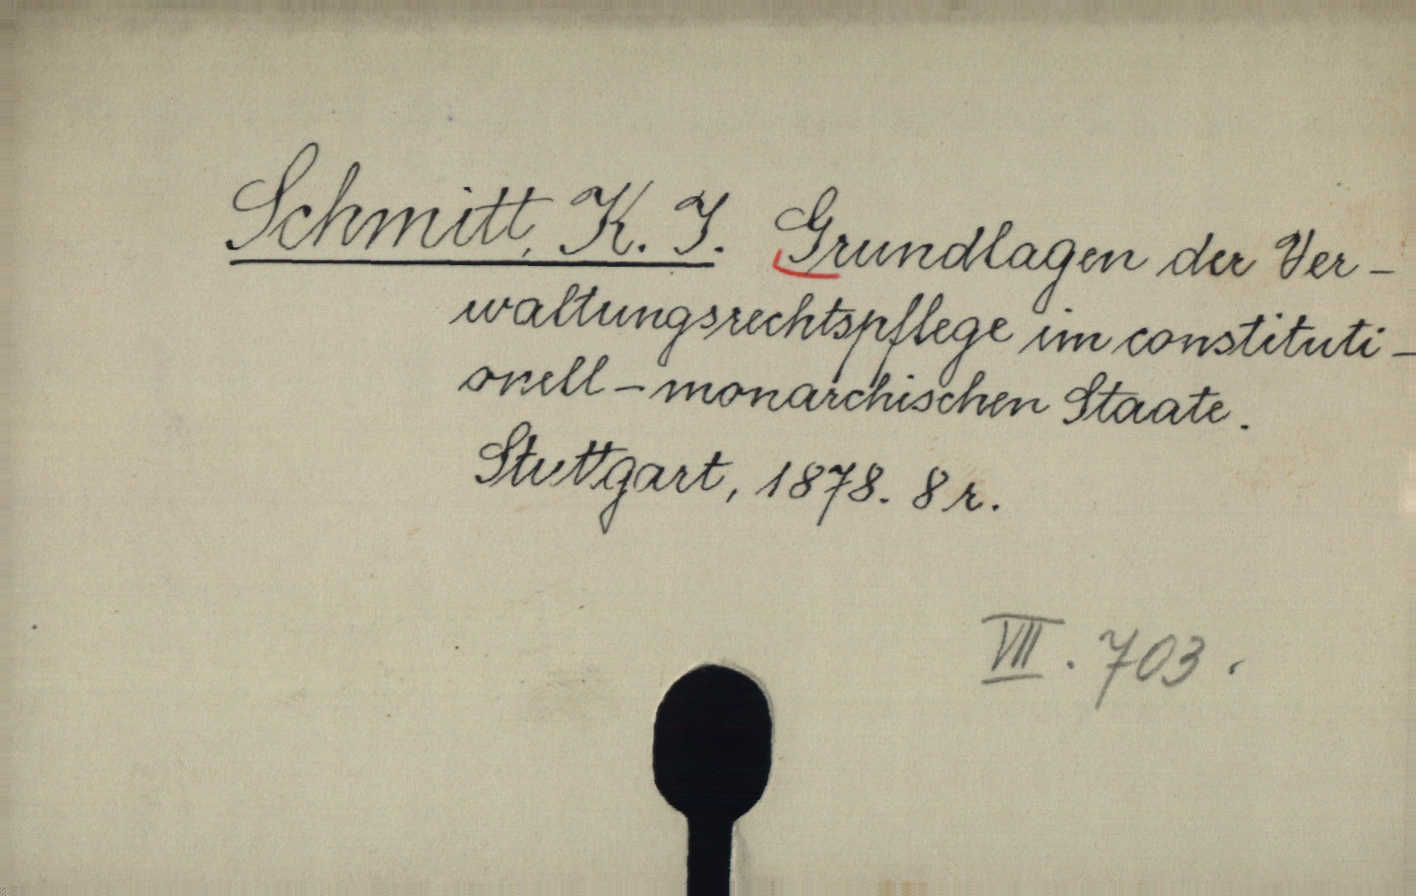 Schmitt, K. J. Grundlagen der Ver-
waltungsrechtspflege im constituti-
onell-monarchischen Staate.
Stuttgart, 1878. 8 r.
VII. 703.